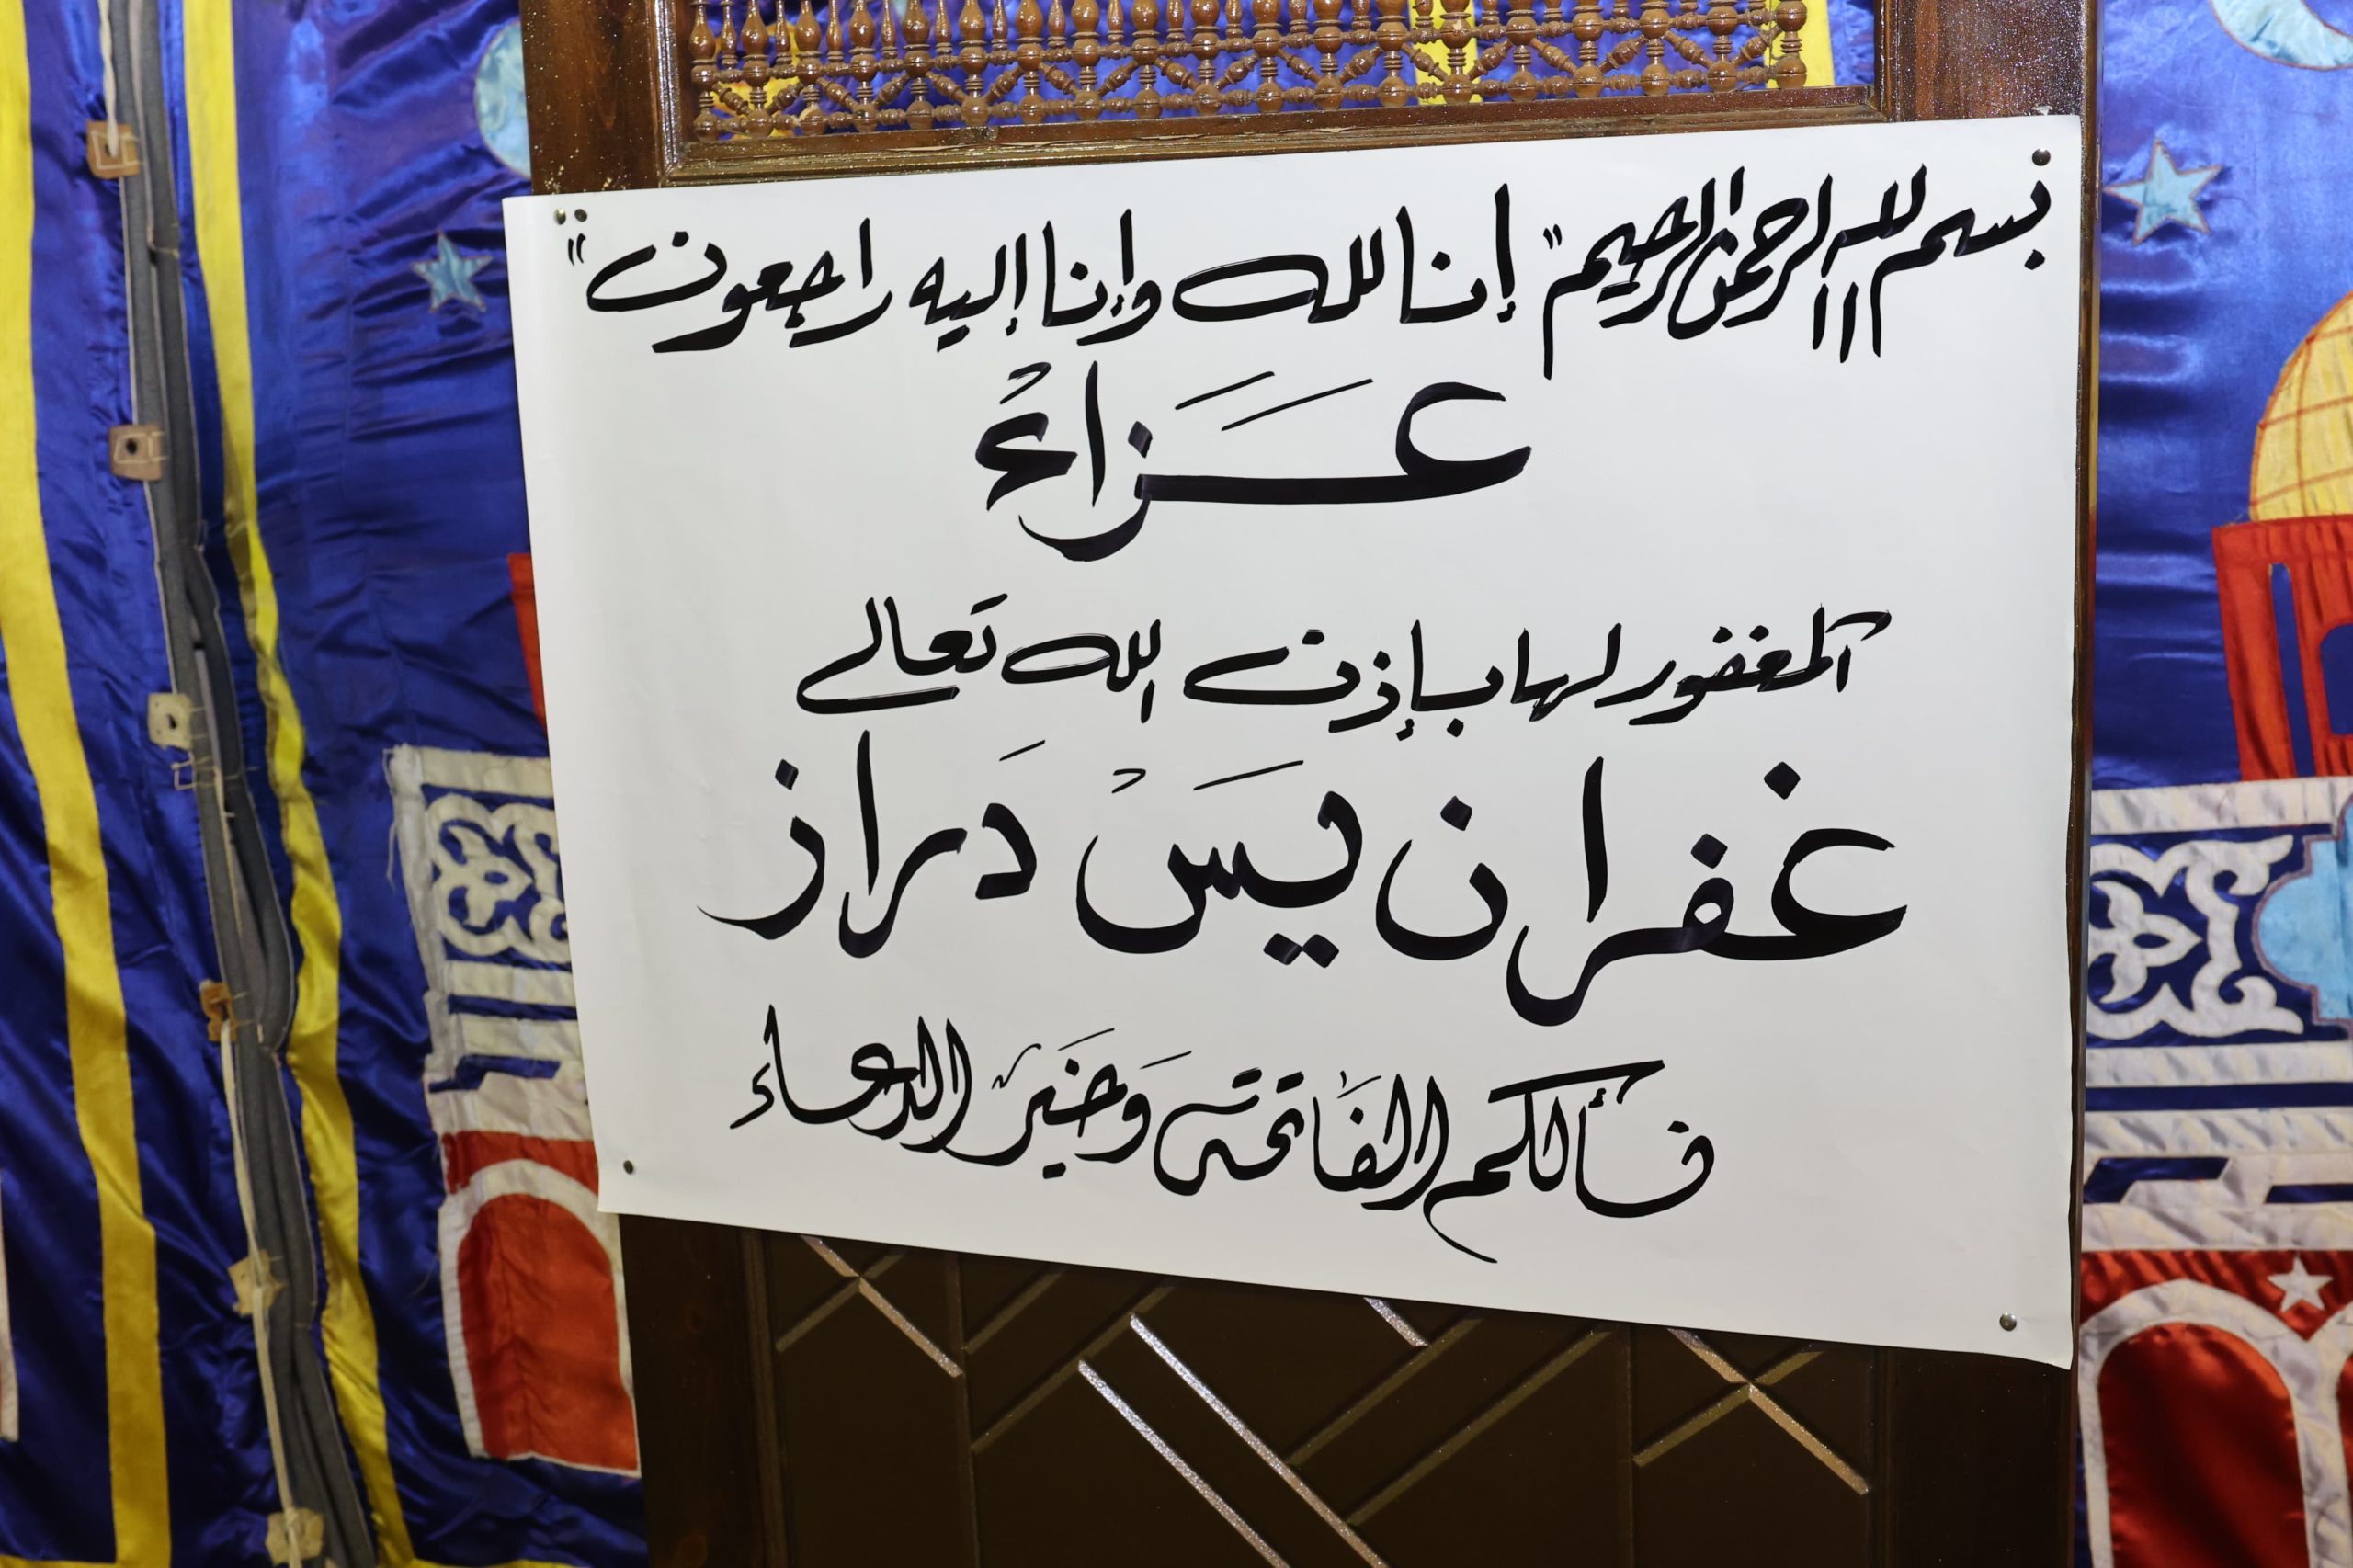 بسم الله الرحمن الرحيم "إنا لله وإنا إليه راجعون"
عزاء
المغفور لها بإذن الله تعالى
غفران يس دراز
نسألكم الفاتحة وخير الدعاء